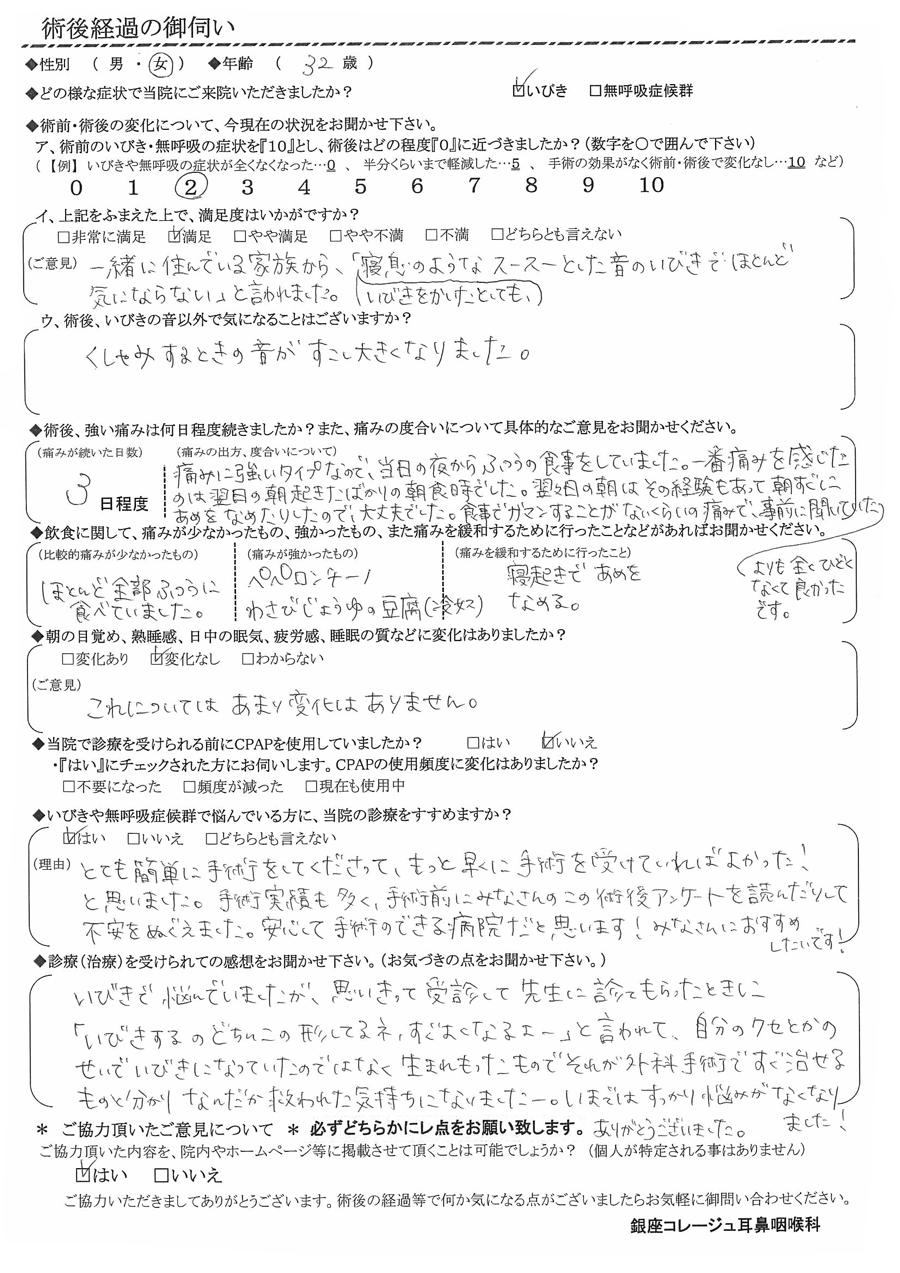 術後経過の御伺い
◆性別 ( 男 ・ 女 ) ◆年齢 ( 32 歳 )
◆どの様な症状で当院にご来院いただきましたか? ☑いびき □無呼吸症候群
◆術前・術後の変化について、今現在の状況をお聞かせ下さい。
ア、術前のいびき・無呼吸の症状を『10』とし、術後はどの程度『0』に近づきましたか?(数字を○で囲んで下さい)
(【例】いびきや無呼吸の症状が全くなくなった…0 、 半分くらいまで軽減した…5 、 手術の効果がなく術前・術後で変化なし…10 など)
0 1 2 3 4 5 6 7 8 9 10
イ、上記をふまえた上で、満足度はいかがですか?
□非常に満足 ☑満足 □やや満足 □やや不満 □不満 □どちらとも言えない
(ご意見) 一緒に住んでいる家族から、「寝息のようなスースーとした音のいびきでほとんど
気にならない」と言われました。(いびきをかけたとしても、)
ウ、術後、いびきの音以外で気になることはございますか?
くしゃみするときの音がすこし大きくなりました。
◆術後、強い痛みは何日程度続きましたか?また、痛みの度合いについて具体的なご意見をお聞かせください。
(痛みが続いた日数) (痛みの出方、度合いについて)
3 日程度
痛みに強いタイプなので、当日の夜からふつうの食事をしていました。一番痛みを感じた
のは翌日の朝起きたばかりの朝食時でした。翌々日の朝はその経験もあって朝すぐに
あめをなめたりしたので、大丈夫でした。食事でガマンすることがないくらいの痛みで、事前に聞いていた
よりも全くひどく
なくて良かった
です。
◆飲食に関して、痛みが少なかったもの、強かったもの、また痛みを緩和するために行ったことなどがあればお聞かせください。
(比較的痛みが少なかったもの) (痛みが強かったもの) (痛みを緩和するために行ったこと)
ほとんど全部ふつうに
食べていました。
ペペロンチーノ
わさびじょうゆの豆腐(冷奴)
寝起きであめを
なめる。
◆朝の目覚め、熟睡感、日中の眠気、疲労感、睡眠の質などに変化はありましたか?
□変化あり ☑変化なし □わからない
(ご意見)
これについてはあまり変化はありません。
◆当院で診療を受けられる前にCPAPを使用していましたか? □はい ☑いいえ
・『はい』にチェックされた方にお伺いします。CPAPの使用頻度に変化はありましたか?
□不要になった □頻度が減った □現在も使用中
◆いびきや無呼吸症候群で悩んでいる方に、当院の診療をすすめますか?
☑はい □いいえ □どちらとも言えない
(理由) とても簡単に手術をしてくださって、もっと早くに手術を受けていればよかった!
と思いました。手術実績も多く、手術前にみなさんのこの術後アンケートを読んだりして
不安をぬぐえました。安心して手術のできる病院だと思います!みなさんにおすすめ
したいです!
◆診療(治療)を受けられての感想をお聞かせ下さい。(お気づきの点をお聞かせ下さい。)
いびきで悩んでいましたが、思いきって受診して先生に診てもらったときに
「いびきするのどちんこの形してるネ、すぐよくなるよー」と言われて、自分のクセとかの
せいでいびきになっていたのではなく生まれもったものでそれが外科手術ですぐ治せる
ものと分かりなんだか救われた気持ちになりましたー。いまではすっかり悩みがなくなり
ました!
ありがとうございました。
＊ ご協力頂いたご意見について ＊ 必ずどちらかにレ点をお願い致します。
ご協力頂いた内容を、院内やホームページ等に掲載させて頂くことは可能でしょうか? (個人が特定される事はありません)
☑はい □いいえ
ご協力いただきましてありがとうございます。術後の経過等で何か気になる点がございましたらお気軽に御問い合わせください。
銀座コレージュ耳鼻咽喉科